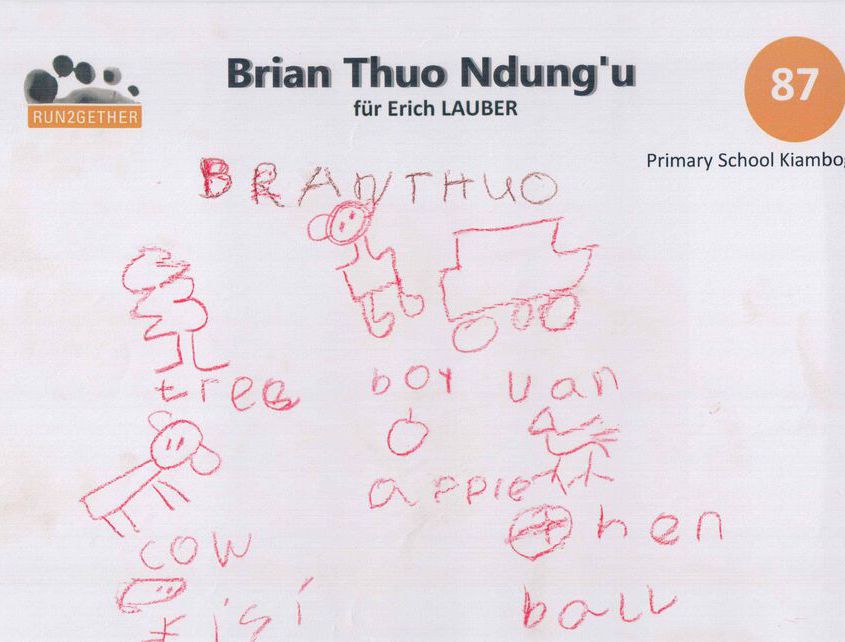 Brian Thuo Ndung'u
für Erich LAUBER
87
RUN2GETHER
Primary School Kiambog
BRANTHUO
tree boy van
apple
cow
hen
ball